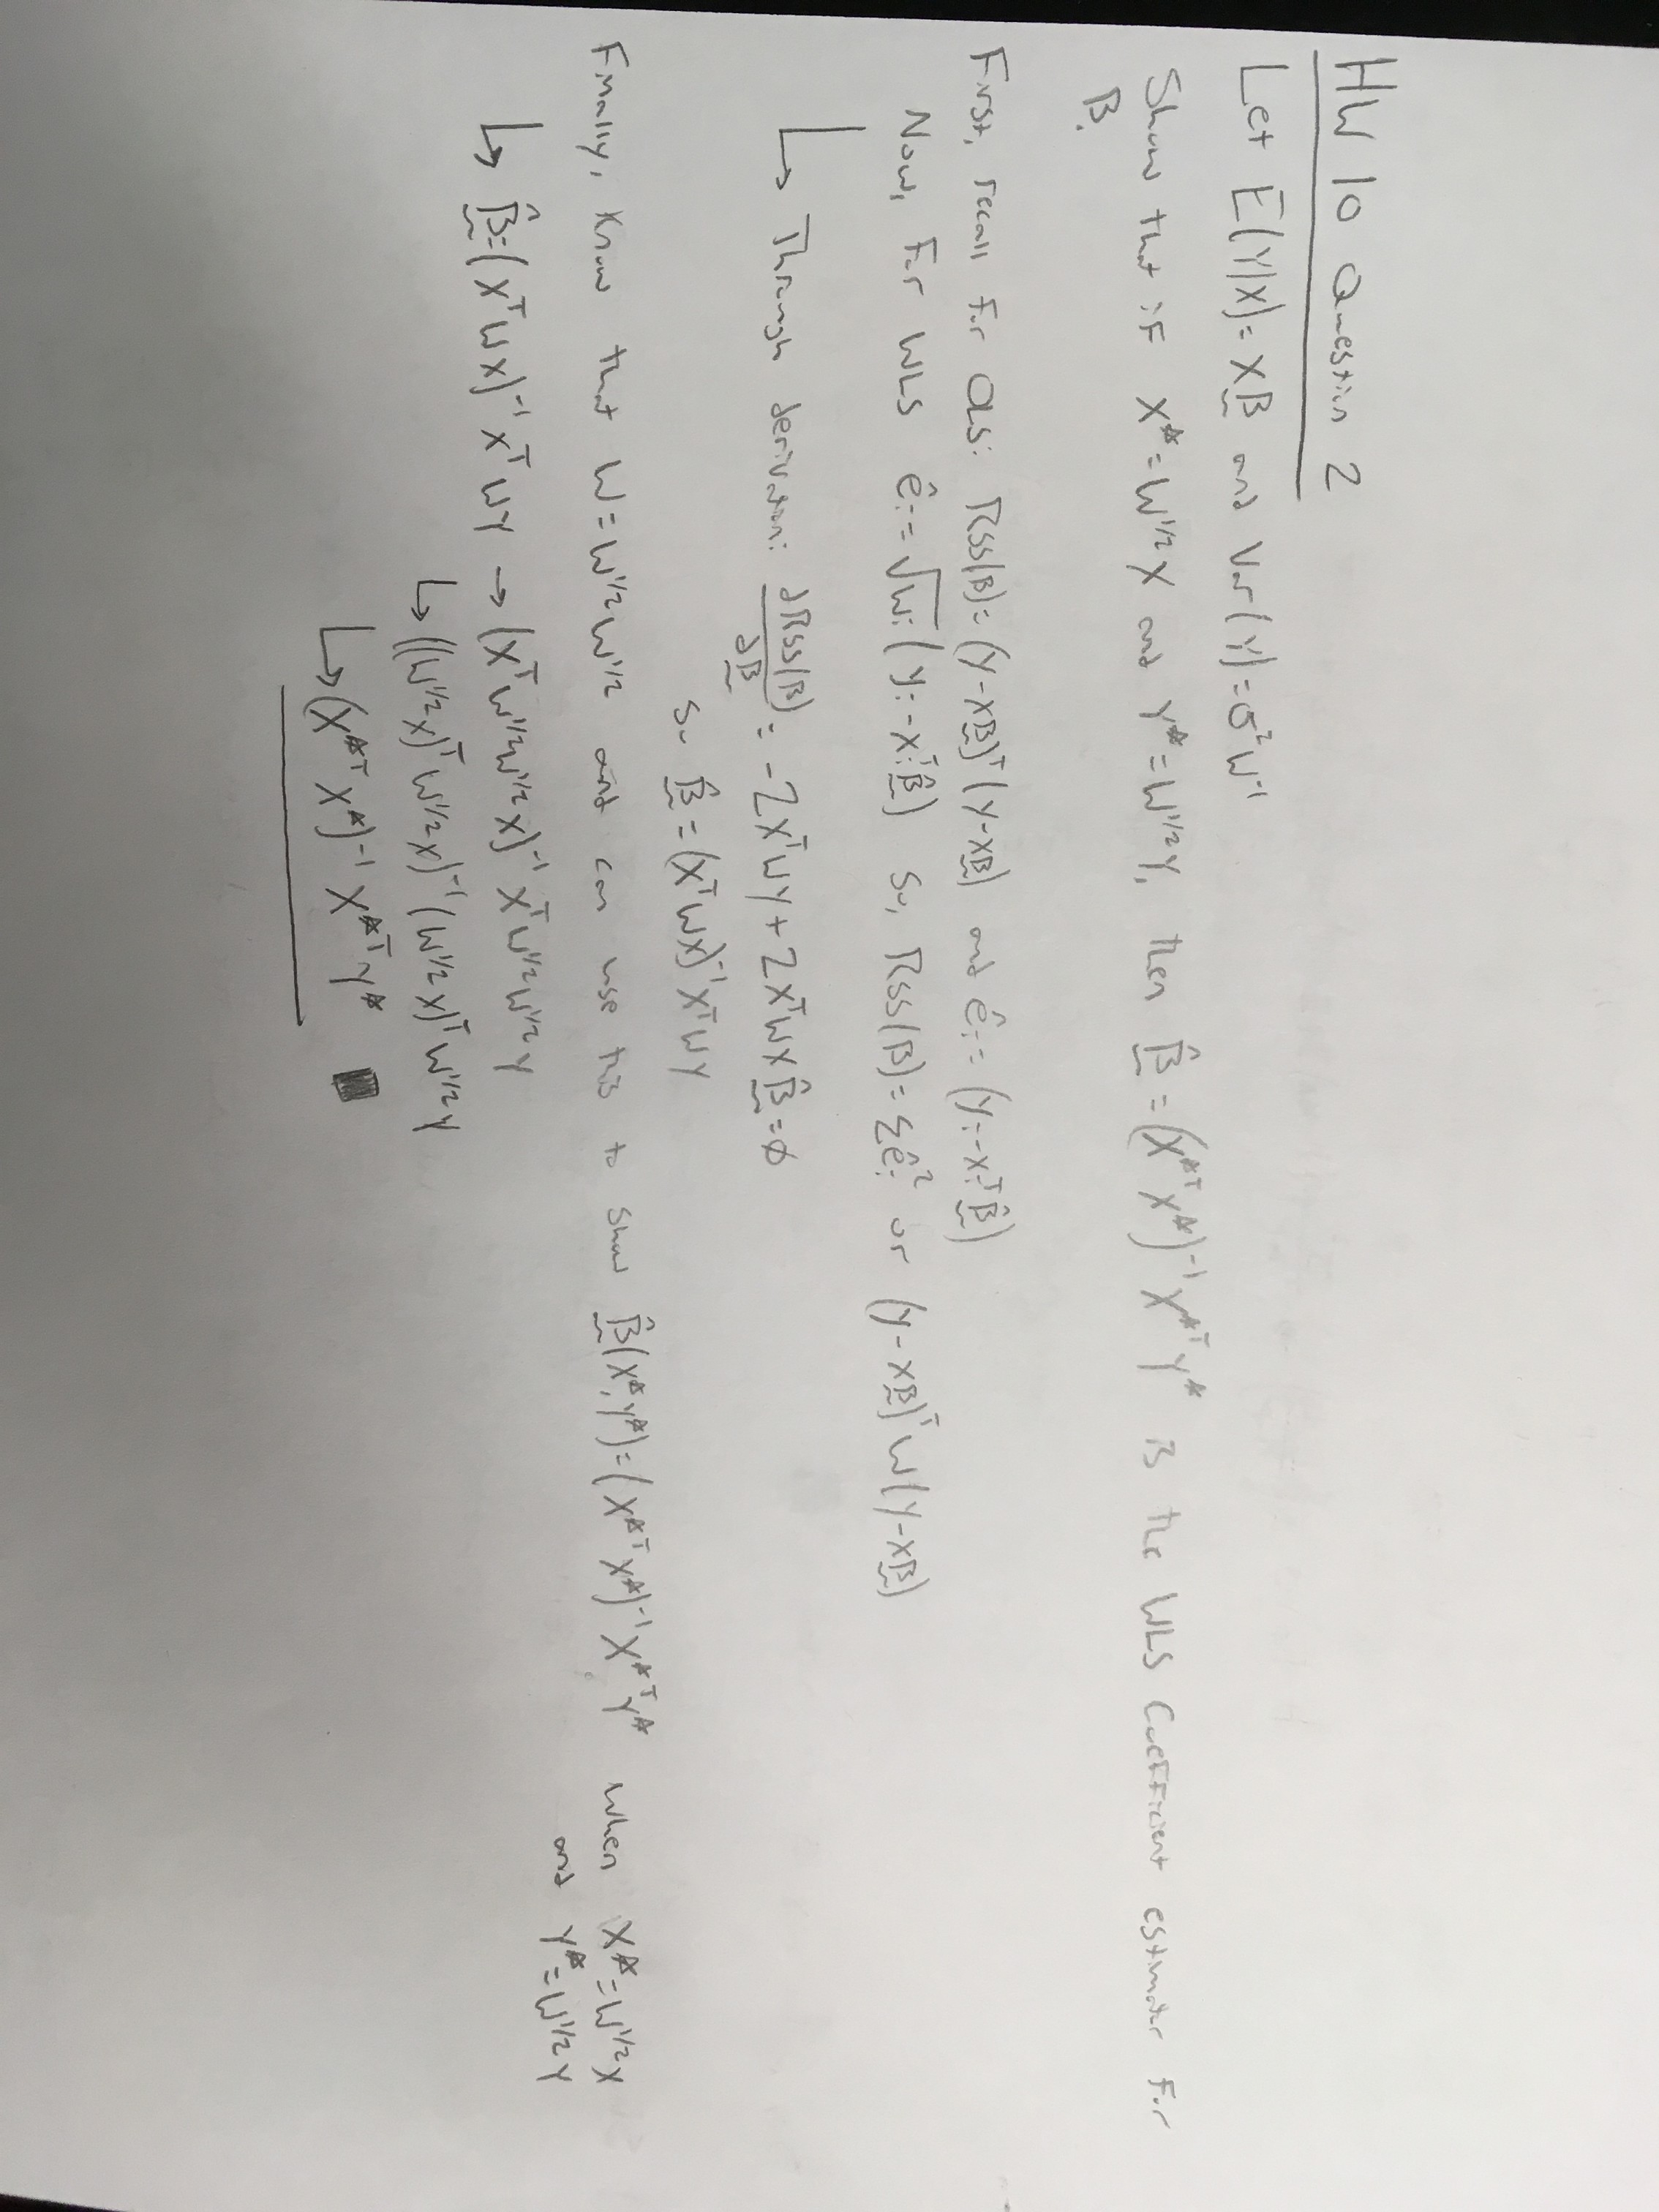 HW 10 Question 2
Let E(Y|X) = Xβ and Var(Y) = σ²W⁻¹
Show that if X* = W^{1/2}X and Y* = W^{1/2}Y, then β̂ = (X*ᵀX*)⁻¹X*ᵀY* is the WLS coefficient estimator for
β.
First, recall for OLS: RSS(β) = (Y-Xβ)ᵀ(Y-Xβ) and êᵢ = (yᵢ-xᵢᵀβ̂)
Now, for WLS êᵢ = √wᵢ(yᵢ-xᵢᵀβ̂) so, RSS(β) = Σêᵢ² or (Y-Xβ)ᵀW(Y-Xβ)
↳ Through derivation: ∂RSS(β)/∂β = -2XᵀWY + 2XᵀWXβ̂ = 0
so β̂ = (XᵀWX)⁻¹XᵀWY
Finally, know that W = W^{1/2}W^{1/2} and can use this to show β̂(X*,Y*) = (X*ᵀX*)⁻¹X*ᵀY* when X* = W^{1/2}X
and Y* = W^{1/2}Y
↳ β̂ = (XᵀWX)⁻¹XᵀWY → (XᵀW^{1/2}W^{1/2}X)⁻¹XᵀW^{1/2}W^{1/2}Y
↳ ((W^{1/2}X)ᵀW^{1/2}X)⁻¹(W^{1/2}X)ᵀW^{1/2}Y
↳ (X*ᵀX*)⁻¹X*ᵀY* ■